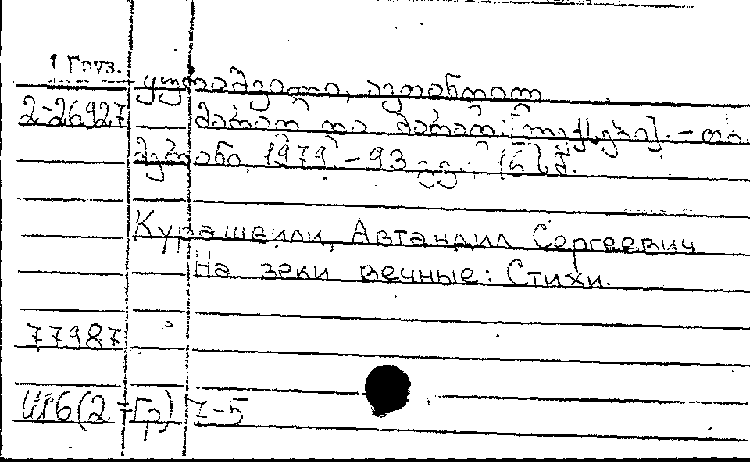 1 Груз.
ყურაშვილი, ავთანდილ
2-26927 მარად და მარად: [ლექსები]. – თბ.
მერანი, 1979 – 93 გვ.; 16 სმ.
Курашвили, Автандил Сергеевич
На веки вечные: Стихи.
77987
И6(2=Гр)7-5